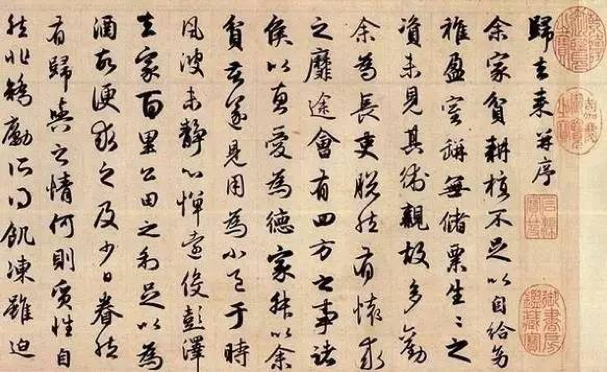 歸去来并序
余家貧耕植不足以自給幼
稚盈室缾無儲粟生〻之
資未見其術親故多勸
余為長吏脫然有懷求
之靡途會有四方之事諸
侯以惠愛為德家叔以余
貧苦遂見用為小邑于時
風波未靜心憚遠役彭澤
去家百里公田之利足以為
酒故便求之及少日眷然
有歸與之情何則質性自
然非矯勵所得飢凍雖迫
御書房鑑藏寶